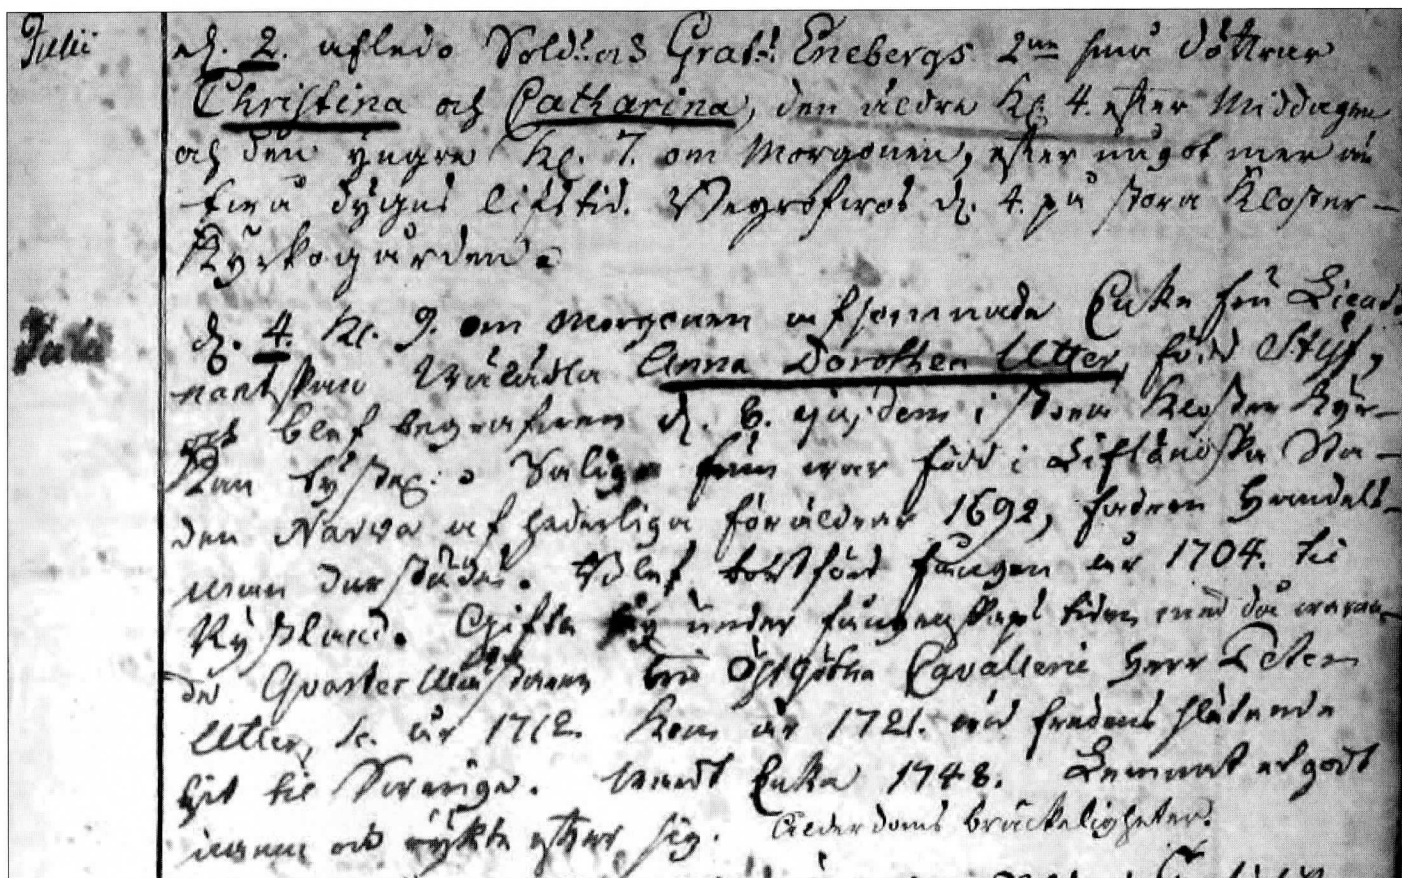 Julii
d. 2. afledo Sold:s Grat: Enebergs 2ne små döttrar
Christina och Catharina, den äldre Kl. 4. efter Middagen
och den yngre Kl. 7. om Morgonen, efter något mer än
twå dygns lifstid. Begrofwos d. 4. på stora Kloster-
Kyrkogården.
Julii
d. 4. Kl. 9. om Morgonen afsomnade Enka fru Lieute-
nantskan Wälädla Anna Dorothea Utter, född Styf,
och blef begrafwen d. 8. ejusdem i stora Kloster Kyr-
kan. Saliga frun war född i Lifländska Sta-
den Narva af hederliga föräldrar 1692, fadren Handels-
man därstädes. Blef bortförd fången år 1704. til
Ryssland. Gifte sig under fångenskaps tiden med då waran-
de Quartermästaren wid Östgötha Cavallerie Herr Peter
Utter, år 1712. Kom år 1721. wid fredens slutande
hit til Swerige. Enka 1748. Lemnat et godt
namn och rykte efter sig. Ålderdoms bräckeligheter.